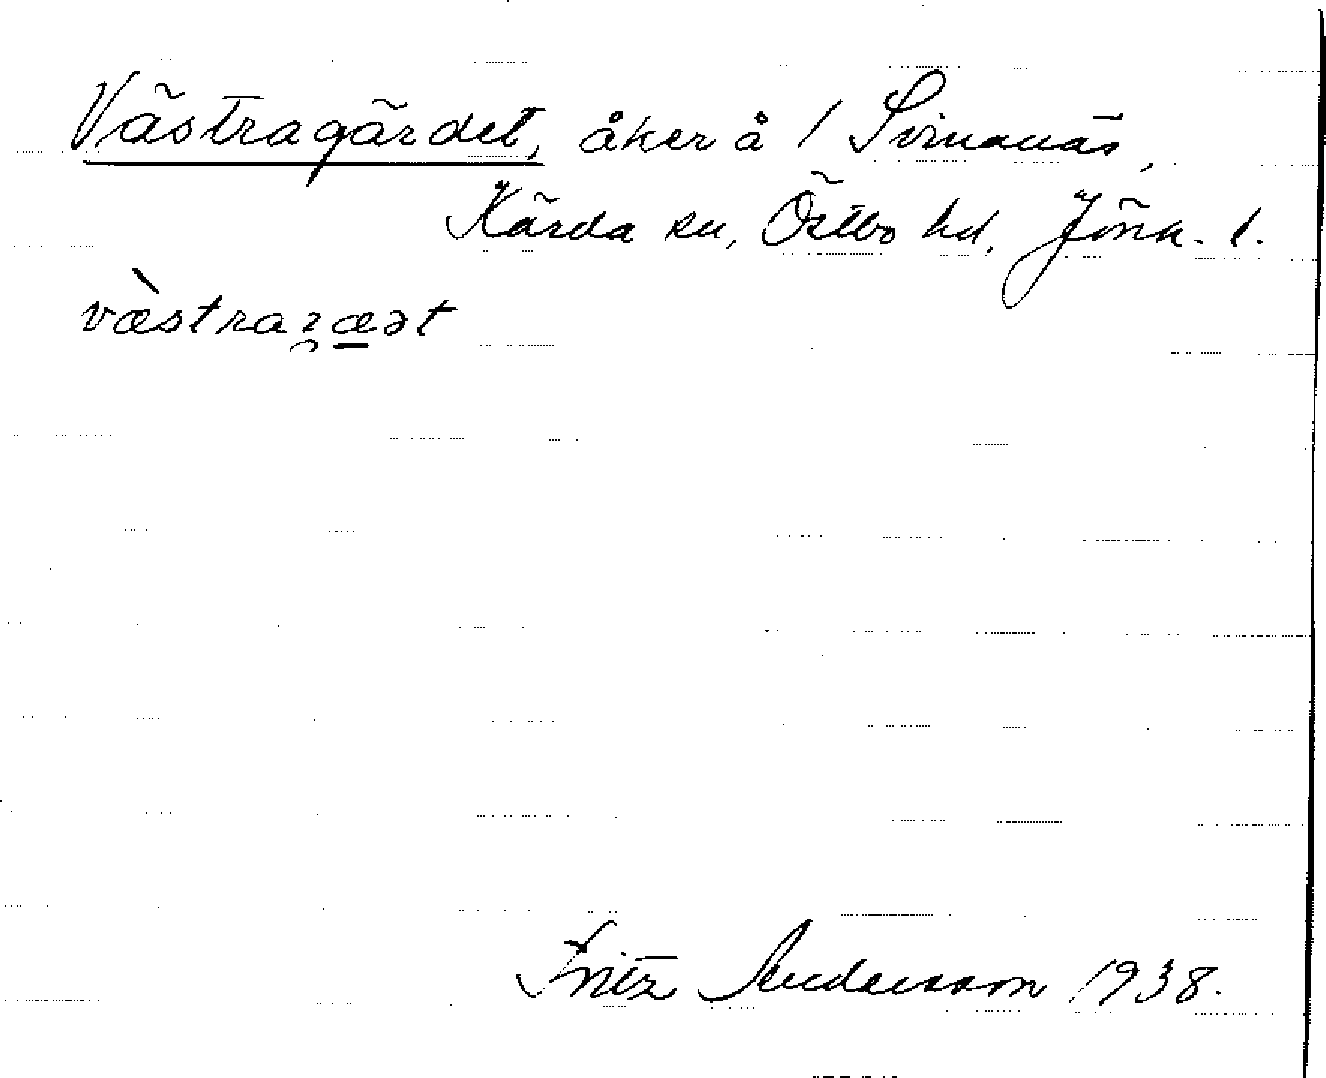 Västragärdet, åker å 1 Svinanäs,
Kärda sn, Östbo hd, Jönk. l.
vàstraʒæ̱ət
Fritz Andersson 1938.